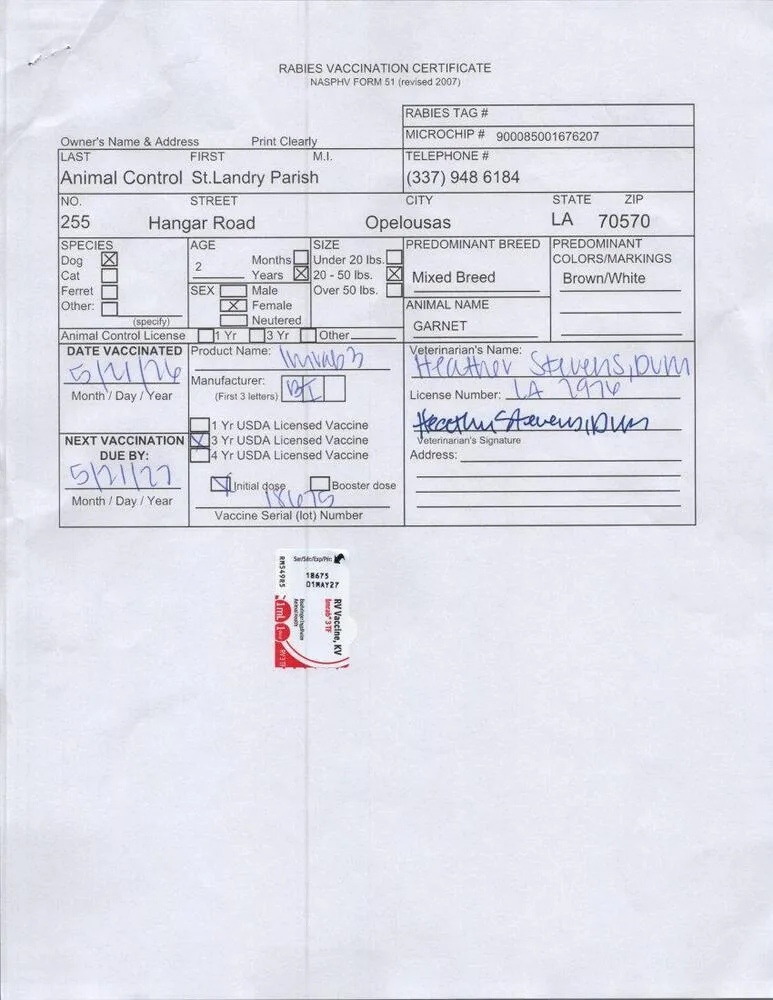 RABIES VACCINATION CERTIFICATE
NASPHV FORM 51 (revised 2007)
RABIES TAG #
Owner's Name & Address Print Clearly
MICROCHIP # 900085001676207
LAST FIRST M.I.
TELEPHONE #
Animal Control St.Landry Parish
(337) 948 6184
NO. STREET CITY STATE ZIP
255 Hangar Road Opelousas LA 70570
SPECIES
Dog
Cat
Ferret
Other:
(specify)
AGE
2
Months
Years
SEX
Male
Female
Neutered
SIZE
Under 20 lbs.
20 - 50 lbs.
Over 50 lbs.
PREDOMINANT BREED
Mixed Breed
PREDOMINANT
COLORS/MARKINGS
Brown/White
ANIMAL NAME
GARNET
Animal Control License 1 Yr 3 Yr Other
DATE VACCINATED
5/21/26
Month / Day / Year
NEXT VACCINATION
DUE BY:
5/21/27
Month / Day / Year
Product Name: Imrab 3
Manufacturer: BI
(First 3 letters)
1 Yr USDA Licensed Vaccine
3 Yr USDA Licensed Vaccine
4 Yr USDA Licensed Vaccine
Initial dose Booster dose
18675
Vaccine Serial (lot) Number
Veterinarian's Name:
Heather Stevens, DVM
License Number: LA 2976
Heather Stevens, DVM
Veterinarian's Signature
Address:
Ser/Sér/Exp/Pér:
18675
01MAY27
RM549R5
RV Vaccine, KV
Imrab® 3 TF
Boehringer Ingelheim
Animal Health
1 mL